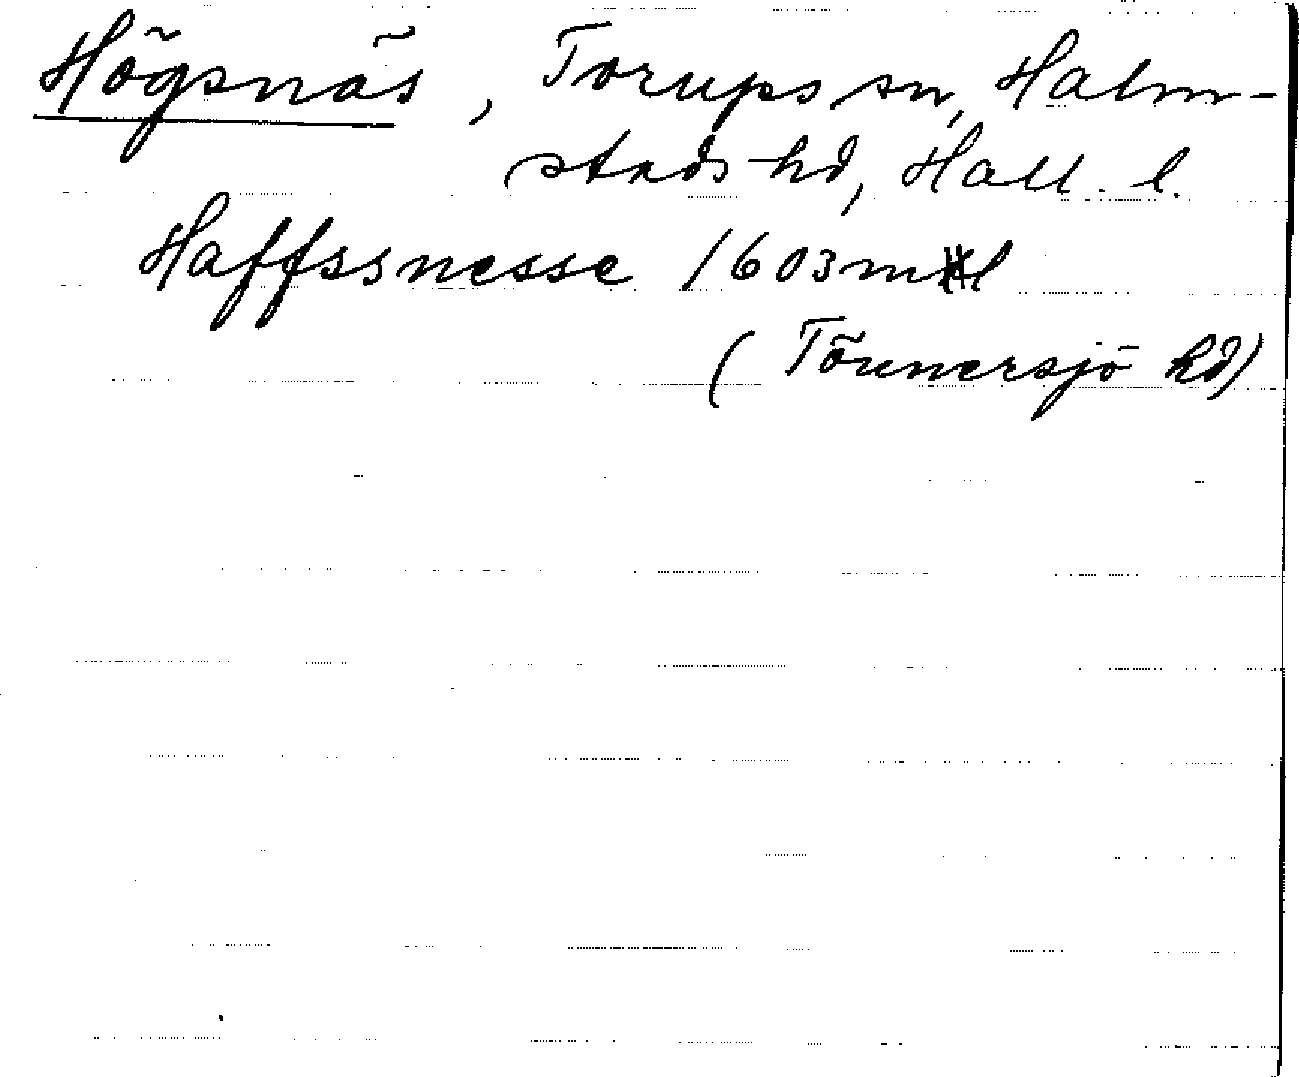 Högsnäs, Torups sn, Halm-
stads hd, Hall. l.
Haffssnesse 1603 ml
(Tönnersjö hd)